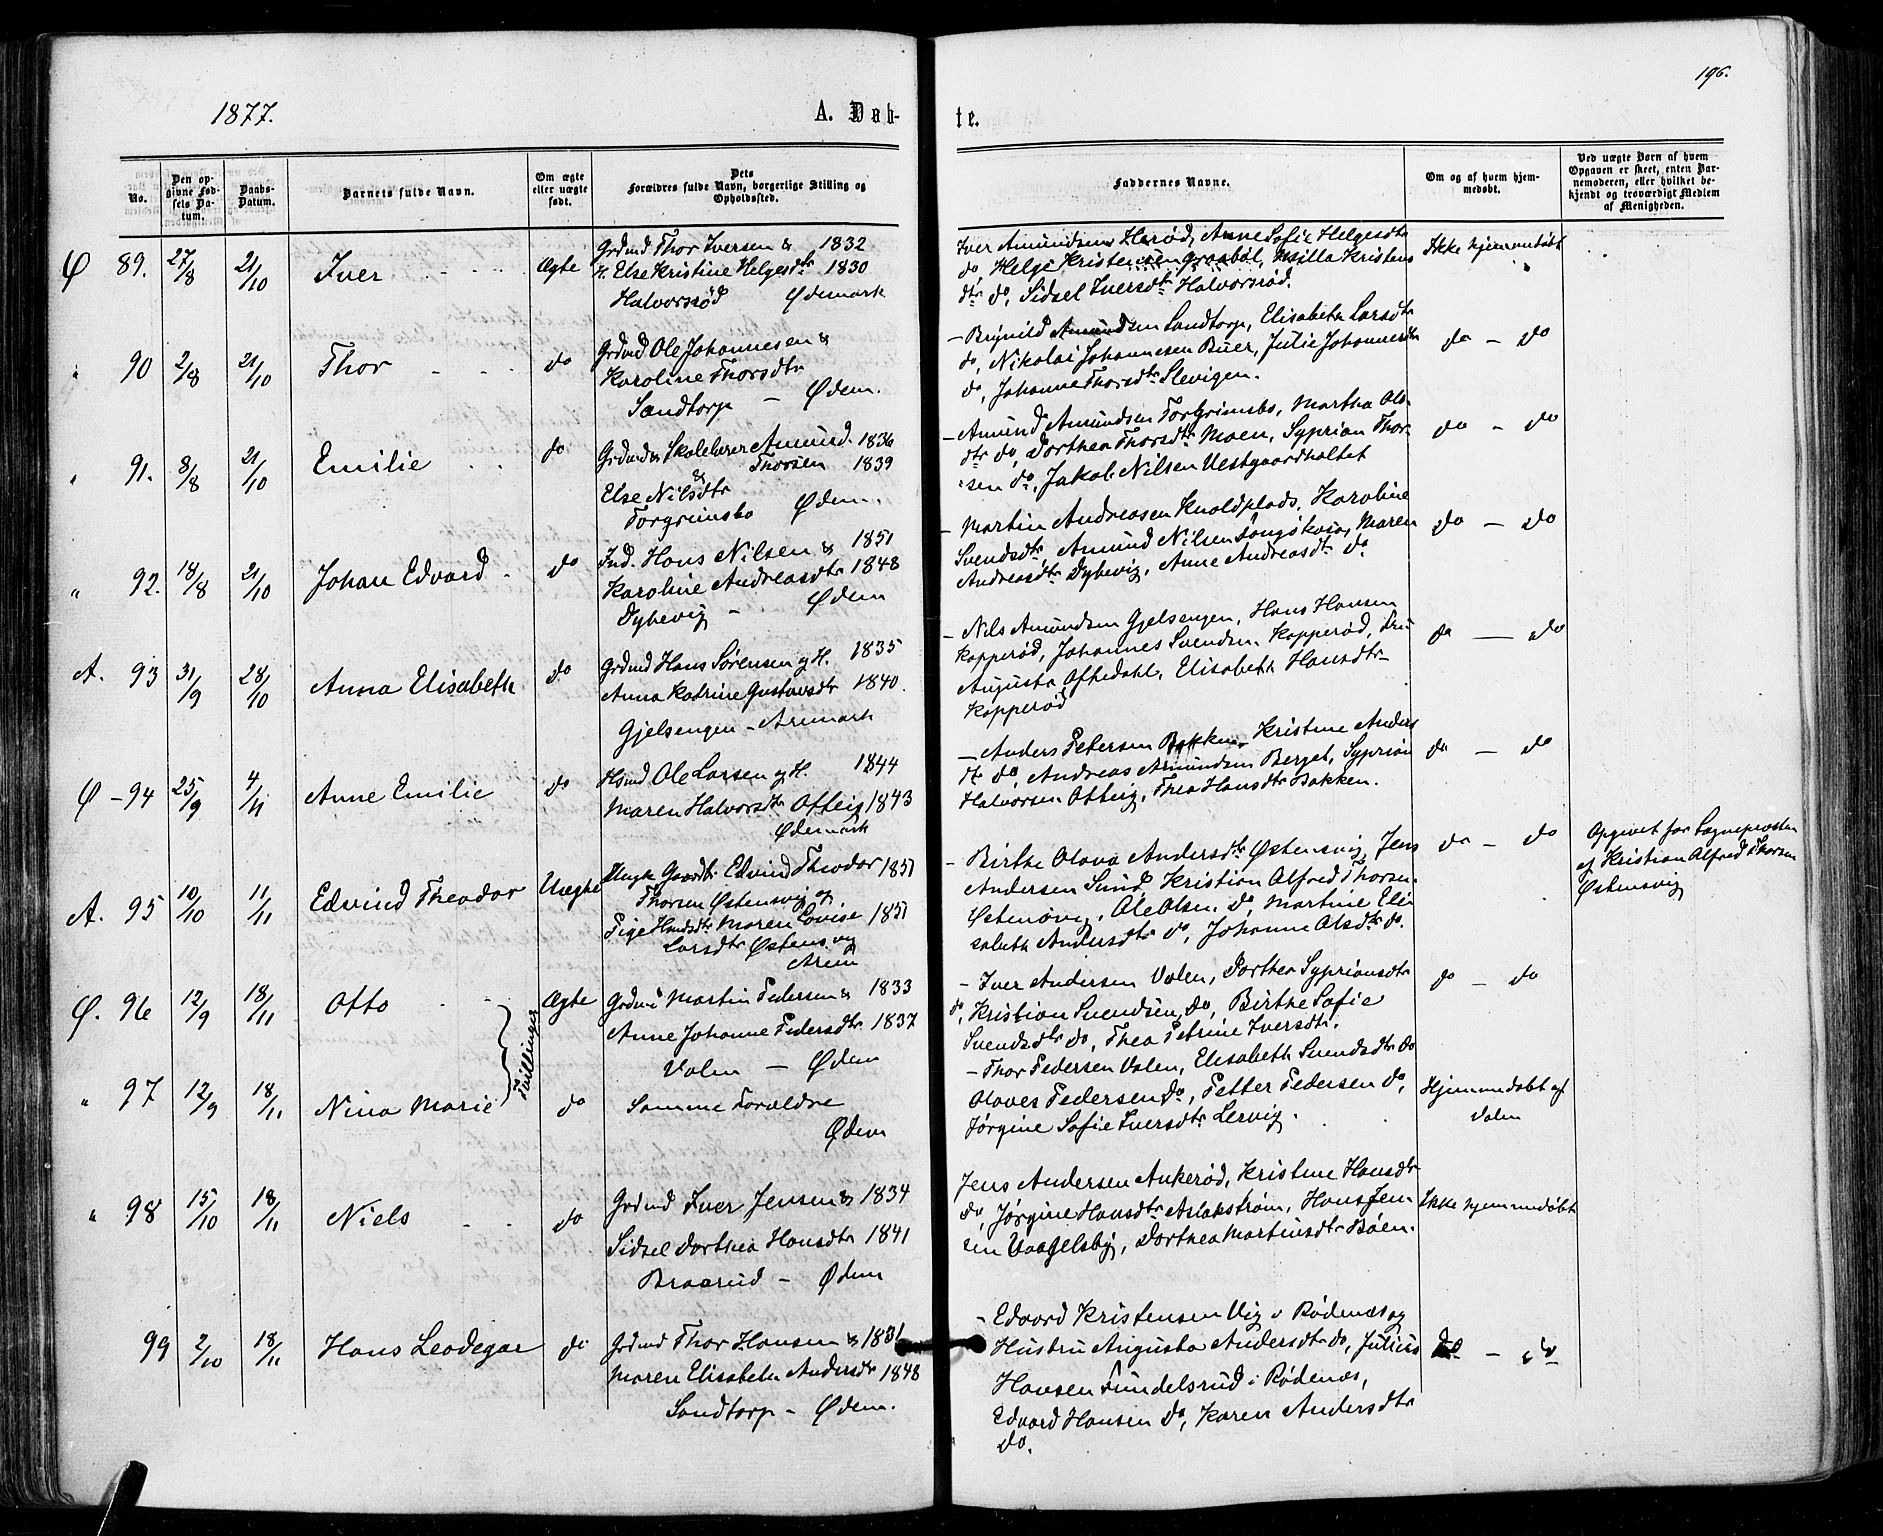 196.
1877.
A. Døb-
te.
No.
Den op-
givne Fød-
sels Da-
tum.
Daabs-
Datum.
Barnets fulde Navn.
Om ægte
eller uægte
født.
Dets
Forældres fulde Navn, borgerlige Stilling og
Opholdssted.
Faddernes Navne.
Om og af hvem hjem-
medøbt.
Ved uægte Børn af hvem
Opgaven er skeet, enten Bar-
nemoderen, eller hvilket be-
kjendt og troværdigt Medlem
af Menigheden.
Ø 89. 27/8 21/10 Iver Ægte
Grdmd Thor Iversen & 1832
H. Else Kristine Helgesdtr 1830
Halvorsrød Ødemark
Iver Amundsen Herød, Anne Sofie Helgesdtr
do, Helge Kristensen Graabøl, Milla Kristens
dtr do, Sidsel Iversdtr Halvorsrød.
Ikke hjemmedøbt
" 90 2/8 21/10 Thor do
Grdmd Ole Johannesen &
Karoline Thorsdtr
Sandtorp – Ødem.
– Brynild Amundsen Sandtorp, Elisabeth Larsdtr
do, Nikolai Johannesen Buer, Julie Johannesdtr
do, Johanne Thorsdtr Slevigen.
do – do
" 91. 8/8 21/10 Emilie do
Grdmd & Skolelærer Amund. 1836
Thorsen 1839
&
Else Nilsdtr
Torgrimsbo Ødem.
– Amund Amundsen Torgrimsbo, Martha Ols-
dtr do, Dorthea Thorsdtr Moen, Syprian Thor-
sen do, Jakob Nilsen Vestgaardholtet
do – do
" 92. 18/8 21/10 Johan Edvard do
Ind. Hans Nilsen & 1851
Karoline Andreasdtr 1848
Dybevig – Ødem
– Martin Andreasen Knoldplads, Karoline
Svendsdtr, Amund Nilsen Maren
Andreasdtr Dybevig, Anne Andreasdtr do
do – do
A. 93 31/9 28/10 Anna Elisabeth do
Grdmd Hans Sørensen og H. 1835
Anna Katrine Gustavsdtr 1840.
Gjelsengen – Aremark
– Nils Amundsen Gjelsengen, Hans Hansen
Kopperød, Johannes Svendsen Kopperød, Fru
Augusta Oftedahl, Elisabeth Hansdtr
Kopperød
do – do
Ø – 94 25/9 4/11 Anne Emilie do
Hsmd Ole Larsen og H. 1844
Maren Halvorsdtr Ofteig 1843
Ødemark
– Anders Petersen Bakken, Kristine Anders
H do Andreas Amundsen Berget, Syprian
Halvorsen Ofteig, Thea Hansdtr Bakken.
do – do
A. 95 10/10 11/11 Edvind Theodor Uægte
Ungk Gaardbr Edvind Theodor 1851
Thorsen Østensvig og
Pige Hmdsdtr Maren Lovise 1851
Larsdtr Østensvig
Arem
– Birthe Olava Andersdtr Østensvig, Jens
Andersen Sund, Kristian Alfred Thorsen
Østensvig, Ole Olsen, do, Martine Eli-
sabeth Andersdtr do, Johanne Olsdtr do.
do – do
Opgivet for Sognepresten
af Kristian Alfred Thorsen
Østensvig
Ø. 96 12/9 18/11 Otto Ægte
Tvillinger
Grdmd Martin Pedersen & 1833
Anne Johanne Pedersdtr 1837
Volen – Ødem
– Iver Andersen Volen, Dorthea Syprionsdtr
do, Kristian Svendsen, do, Birthe Sofie
Svendsdtr do, Thea Petrine Iversdtr.
do – do
" 97 12/9 18/11 Nina Marie do
Samme Forældre
Ødem
– Thor Pedersen Volen, Elisabeth Svendsdtr do
Olaves Pedersen do, Petter Pedersen do,
Jørgine Sofie Iversdtr Lervig.
Hjemmedøbt af
Volen
" 98 15/10 18/11 Niels do
Grdmd Iver Jensen & 1834
Sidsel Dorthea Hansdtr 1841
Braarud – Ødem
Jens Andersen Ankerød, Kristine Hansdtr
do, Jørgine Hansdtr Aslakstrøm, Hans Jen-
sen Vaagelsby, Dorthea Martinsdtr Bøen.
Ikke hjemmedøbt
99 2/10 18/11 Hans Leodegar do
Grdmd Thor Hansen & 1831
Maren Elisabeth Andersdtr 1848
Sandtorp – Ødem.
– Edvard Kristensen Vig i Rødenæs og
Hustru Augusta Andersdtr do, Julius
Hansen Fundelsrud i Rødenæs,
Edvard Hansen do, Karen Andersdtr
do.
do – do